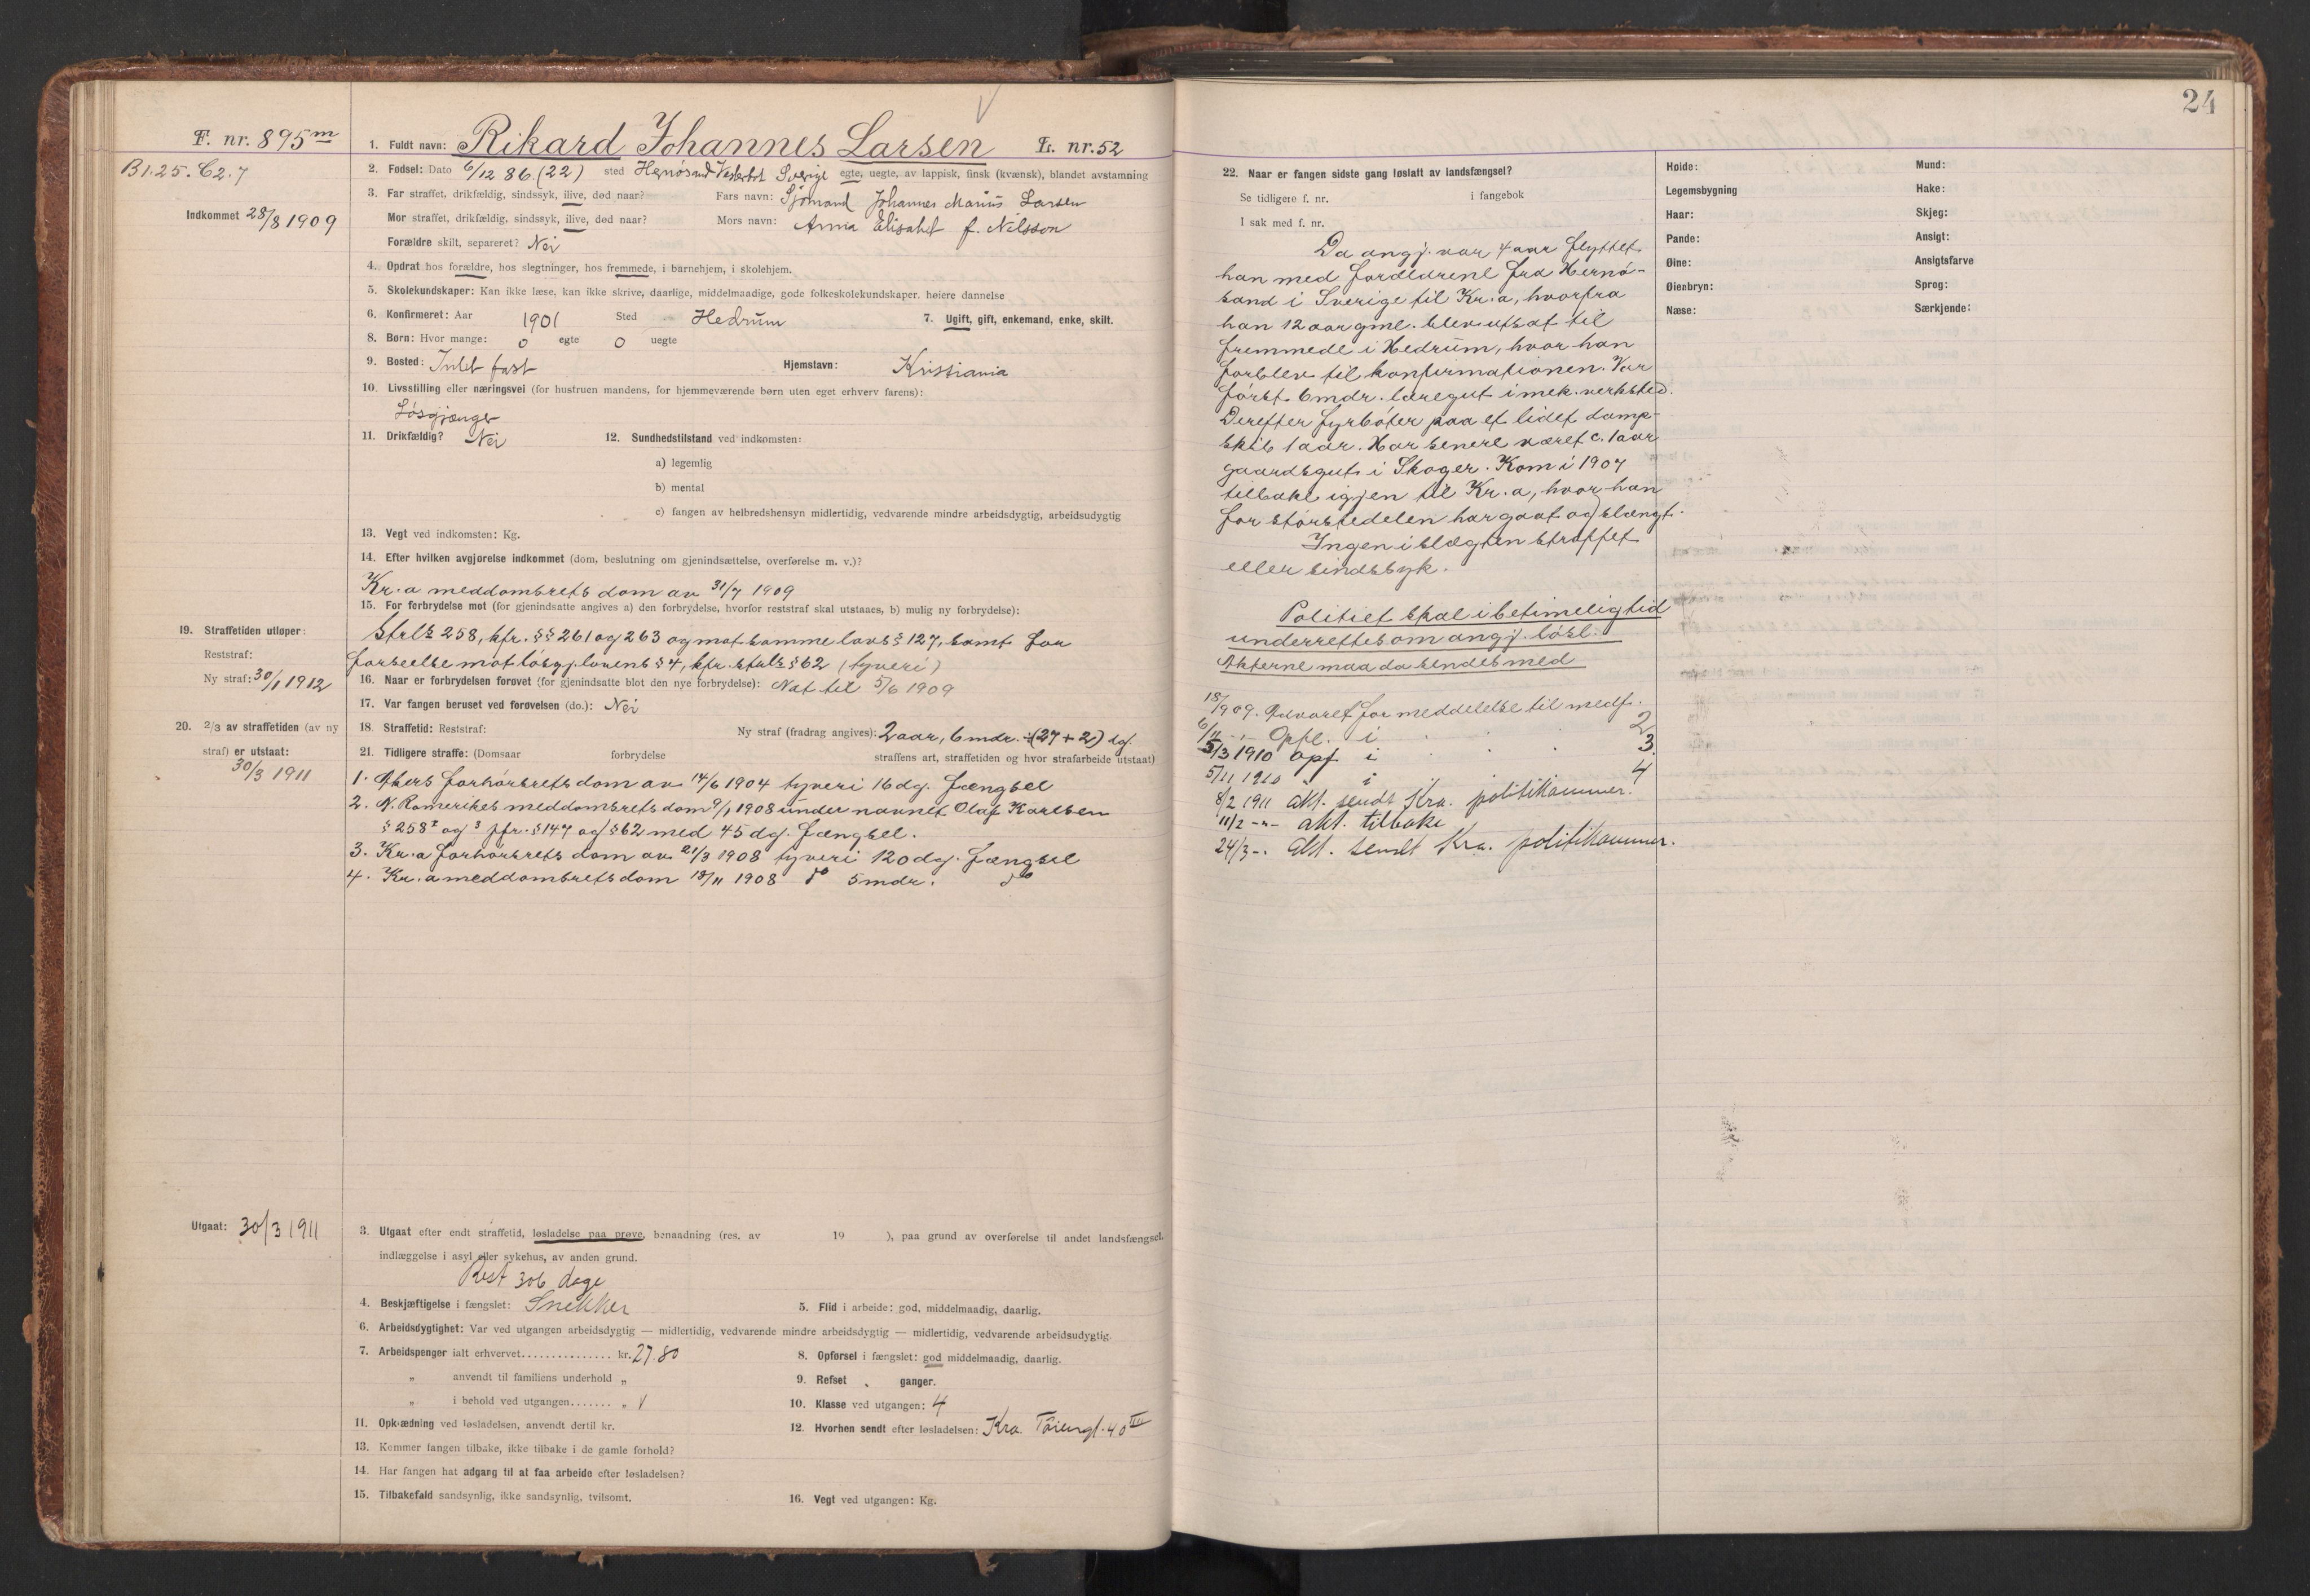 24
F. nr. 895 m
B1.25. C2.7
Indkommet 28/8 1909
1. Fuldt navn: Rikard Johannes Larsen L. nr. 52
2. Fødsel: Dato 6/12 86. (22) sted Hernösand Sverige egte, uegte, av lappisk, finsk (kvænsk), blandet avstamning
3. Far straffet, drikfældig, sindssyk, ilive, død naar? Fars navn: Sjömand Johannes Marius Larsen
Mor straffet, drikfældig, sindssyk, ilive, død naar? Mors navn: Anna Elisabet f. Nilsson
Forældre skilt, separeret? Nei
4. Opdrat hos forældre, hos slegtninger, hos fremmede, i barnehjem, i skolehjem.
5. Skolekundskaper: Kan ikke læse, kan ikke skrive, daarlige, middelmaadige, gode folkeskolekundskaper, høiere dannelse
6. Konfirmeret: Aar 1901 Sted Hedrum 7. Ugift, gift, enkemand, enke, skilt.
8. Børn: Hvor mange: 0 egte 0 uegte
9. Bosted: Intet fast Hjemstavn: Kristiania
10. Livsstilling eller næringsvei (for hustruen mandens, for hjemmeværende børn uten eget erhverv farens):
Løsgjænger
11. Drikfældig? Nei 12. Sundhedstilstand ved indkomsten:
a) legemlig
b) mental
c) fangen av helbredshensyn midlertidig, vedvarende mindre arbeidsdygtig, arbeidsudygtig
13. Vegt ved indkomsten: Kg.
14. Efter hvilken avgjørelse indkommet (dom, beslutning om gjenindsættelse, overførelse m. v.)?
Kr.a meddomsrets dom av 31/7 1909
15. For forbrydelse mot (for gjenindsatte angives a) den forbrydelse, hvorfor reststraf skal utstaaes, b) mulig ny forbrydelse):
Strls 258, kfr. §§ 261 og 263 og mot samme lovs § 127, samt for
forseelse mot løsgj.lovens § 4, kfr. strls § 62 (tyveri)
16. Naar er forbrydelsen forøvet (for gjenindsatte blot den nye forbrydelse): Nat til 5/6 1909
17. Var fangen beruset ved forøvelsen (do.): Nei
18. Straffetid: Reststraf: Ny straf (fradrag angives): 2 aar, 6 mdr. ÷ (27 + 2) dg.
19. Straffetiden utløper:
Reststraf:
Ny straf: 30/1 1912
20. 2/3 av straffetiden (av ny
straf) er utstaat:
30/3 1911
21. Tidligere straffe: (Domsaar forbrydelse straffens art, straffetiden og hvor strafarbeide utstaat)
1. Akers forhørsrets dom av 14/6 1904 tyveri 16 dg. fængsel
2. N. Romerikes meddomsrets dom 9/1 1908 under navnet Olaf Karlsen
§ 258 1 og 3 jfr. § 147 og § 62 med 45 dg. fængsel.
3. Kr.a forhørsrets dom av 21/3 1908 tyveri 120 dg. fængsel
4. Kr.a meddomsrets dom 18/11 1908 do 5 mdr. do
Utgaat: 30/3 1911
3. Utgaat efter endt straffetid, løsladelse paa prøve, benaadning (res. av 19 ), paa grund av overførelse til andet landsfængsel,
indlæggelse i asyl eller sykehus, av anden grund.
Rest 306 dage
4. Beskjæftigelse i fængslet: Snekker 5. Flid i arbeide: god, middelmaadig, daarlig.
6. Arbeidsdygtighet: Var ved utgangen arbeidsdygtig — midlertidig, vedvarende mindre arbeidsdygtig — midlertidig, vedvarende arbeidsudygtig.
7. Arbeidspenger ialt erhvervet............... kr. 27.80 8. Opførsel i fængslet: god middelmaadig, daarlig.
„ anvendt til familiens underhold „ 9. Refset ganger.
„ i behold ved utgangen....... „ 10. Klasse ved utgangen: 4
11. Opklædning ved løsladelsen, anvendt dertil kr. 12. Hvorhen sendt efter løsladelsen: Kra. Tøiengt. 40 III
13. Kommer fangen tilbake, ikke tilbake i de gamle forhold?
14. Har fangen hat adgang til at faa arbeide efter løsladelsen?
15. Tilbakefald sandsynlig, ikke sandsynlig, tvilsomt. 16. Vegt ved utgangen: Kg.
22. Naar er fangen sidste gang løslatt av landsfængsel?
Se tidligere f. nr. i fangebok
I sak med f. nr.
Da angj. var 4 aar flyttet
han med forældrene fra Hernö-
sand i Sverige til Kr.a, hvorfra
han 12 aar gml. blev utsat til
fremmede i Hedrum, hvor han
forblev til konfirmationen. Var
først 6 mdr. læregut i mek. verksted.
Derefter fyrbøter paa et lidet damp-
skib 1 aar. Har senere været c. 1 aar
gaardsgut i Skoger. Kom i 1907
tilbake igjen til Kr.a, hvor han
for størstedelen har gaat og slængt.
Ingen i slægten straffet
eller sindssyk.
Politiet skal i betimelig tid
underrettes om angj. løsl.
Akterne maa da sendes med
18/9 09. Advaret for meddelelse til medf.
6/11 -"- Opfl. i 2
5/3 1910 Opf i 3.
5/11 1910 " i 4
8/2 1911 Akt. sendt Kra. politikammer.
11/2 -"- akt. tilbake
24/3 -. Akt. sendt Kra. politikammer.
Høide: Mund:
Legemsbygning Hake:
Haar: Skjeg:
Pande: Ansigt:
Øine: Ansigtsfarve
Øienbryn: Sprog:
Næse: Særkjende: